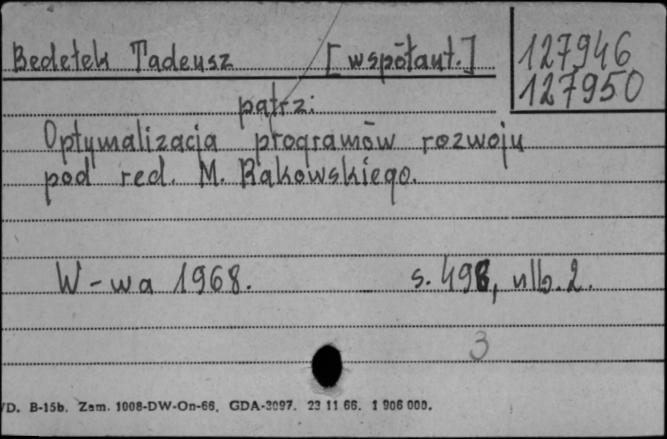 Bedełek Tadeusz [współaut.]
127946
127950
patrz:
Optymalizacja programów rozwoju
pod red. M. Rakowskiego.
W-wa 1968. s. 498, nlb. 2.
3
/D. B-15b. Zam. 1008-DW-On-66. GDA-3097. 23 11 66. 1 906 000.